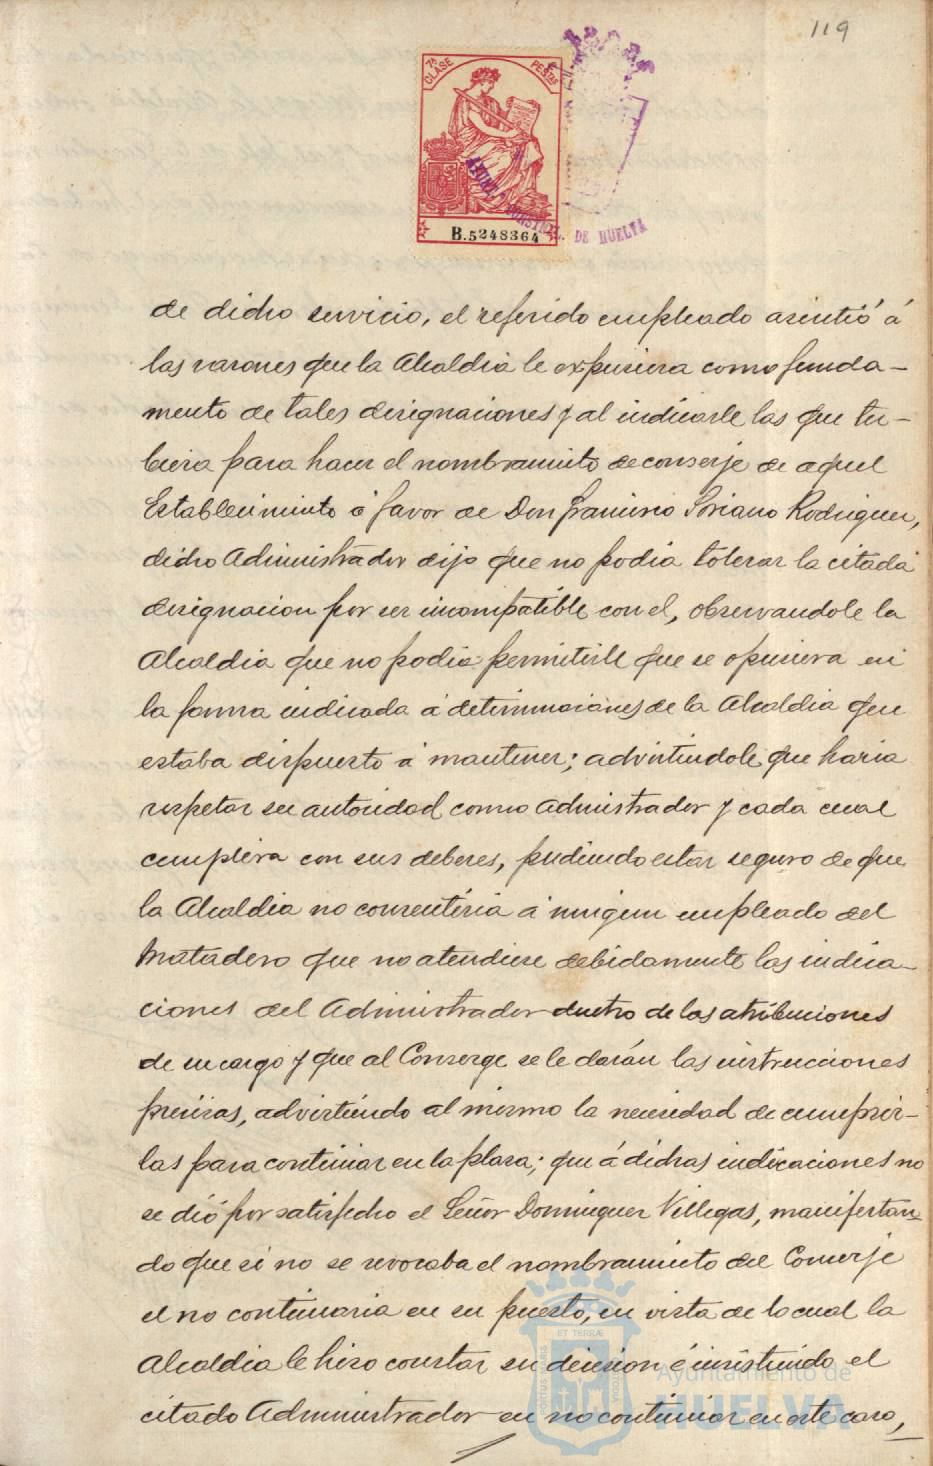 119
7ª CLASE
PESTAS
B.5248364
AYUNT. CONSTNAL. DE HUELVA
de dicho servicio, el referido empleado asintió á
las razones que la Alcaldia le expusiera como funda-
mento de tales designaciones y al indicarle las que tu-
biera para hacer el nombramiento de conserje de aquel
Establecimiento á favor de Don Francisco Soriano Rodriguez,
dicho Administrador dijo que no podia tolerar la citada
designacion por ser incompatible con el, observandole la
Alcaldia que no podia permitirle que se opusiera en
la forma indicada á determinaciones de la Alcaldia que
estaba dispuesto á mantener; advirtiendole que haria
respetar su autoridad como Administrador y cada cual
cumpliera con sus deberes, pudiendo estar seguro de que
la Alcaldia no consentiria á ningun empleado del
Matadero que no atendiese debidamente las indica-
ciones del Administrador dentro de las atribuciones
de su cargo y que al Conserge se le darán las instrucciones
precisas, advirtiendo al mismo la necesidad de cumplir-
las para continuar en la plaza; que á dichas indicaciones no
se dió por satisfecho el Señor Dominguez Villegas, manifestan-
do que si no se revocaba el nombramiento del Conserje
el no continuaria en su puesto, en vista de lo cual la
Alcaldia le hizo constar su decision é insistiendo el
citado Administrador en no continuar en este caso,
Ayuntamiento de
HUELVA